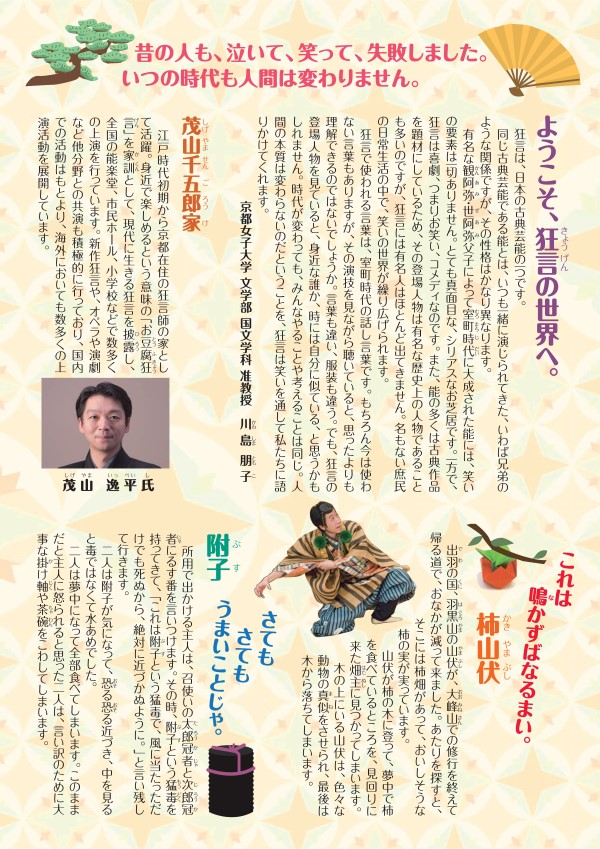 昔の人も、泣いて、笑って、失敗しました。
いつの時代も人間は変わりません。
ようこそ、狂言の世界へ。
きょうげん
狂言は、日本の古典芸能の一つです。
同じ古典芸能である能とは、いつも一緒に演じられてきた、いわば兄弟の
ような関係ですが、その性格はかなり異なります。
有名な観阿弥・世阿弥父子によって室町時代に大成された能には、笑い
の要素は一切ありません。とても真面目な、シリアスなお芝居です。一方で、
狂言は喜劇、つまりお笑い、コメディなのです。また、能の多くは古典作品
を題材にしているため、その登場人物は有名な歴史上の人物であること
も多いのですが、狂言には有名人はほとんど出てきません。名もない庶民
の日常生活の中で、笑いの世界が繰り広げられます。
狂言で使われる言葉は、室町時代の話し言葉です。もちろん今は使わ
ない言葉もありますが、その演技を見ながら聴いていると、思ったよりも
理解できるのではないでしょうか。言葉も違い、服装も違う。でも、狂言の
登場人物を見ていると、身近な誰か、時には自分に似ている、と思うかも
しれません。時代が変わっても、みんなやることや考えることは同じ。人
間の本質は変わらないのだということを、狂言は笑いを通して私たちに語
りかけてくれます。
京都女子大学 文学部 国文学科 准教授 川島 朋子
かわしま ともこ
茂山千五郎家
しげ やま せん ご ろう け
江戸時代初期から京都在住の狂言師の家とし
て活躍。身近で楽しめるという意味の「お豆腐狂
言」を家訓として、現代に生きる狂言を披露し、
全国の能楽堂、市民ホール、小学校などで数多く
の上演を行っています。新作狂言や、オペラや演劇
など他分野との共演も積極的に行っており、国内
での活動はもとより、海外においても数多くの上
演活動を展開しています。
しげ やま いっ ぺい し
茂山 逸平氏
これは
鳴かずばなるまい。
な
柿山伏
かき やま ぶし
出羽の国、羽黒山の山伏が、大峰山での修行を終えて
帰る道で、おなかが減って来ました。あたりを探すと、
そこには柿畑があって、おいしそうな
柿の実が実っています。
山伏が柿の木に登って、夢中で柿
を食べているところを、見回りに
来た畑主に見つかってしまいます。
木の上にいる山伏は、色々な
動物の真似をさせられ、最後は
木から落ちてしまいます。
さても
さても
うまいことじゃ。
附子
ぶ す
所用で出かける主人は、召使いの太郎冠者と次郎冠
者にるす番を言いつけます。その時、附子という猛毒を
持ってきて、「これは附子という猛毒で、風に当たっただ
けでも死ぬから、絶対に近づかぬように。」と言い残し
て行きます。
二人は附子が気になって、恐る恐る近づき、中を見る
と毒ではなくて水あめでした。
二人は夢中になって全部食べてしまいます。このまま
だと主人に怒られると思った二人は、言い訳のために大
事な掛け軸や茶碗をこわしてしまいます。